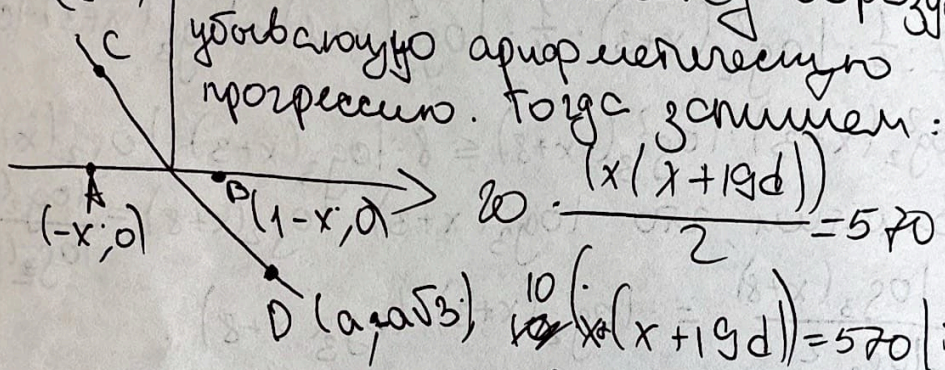 убывающую арифметическую
прогрессию. Тогда запишем:
C
A
(-x; 0)
B(1-x; 0)
D(a; -a√3)
20 · (x(x+19d))/2 = 570
10(x+(x+19d)) = 570